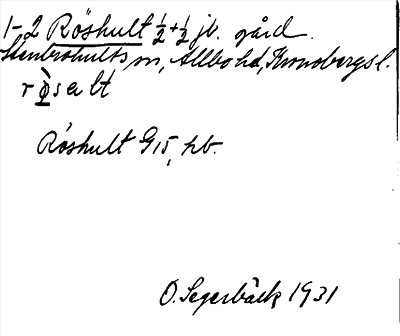 1-2 Röshult ½+½ jb. gård.
Stenbrohults sn, Allbo hd, Kronobergs l.
rø̀salt
Röshult G15, hb.
O. Segerbäck 1931